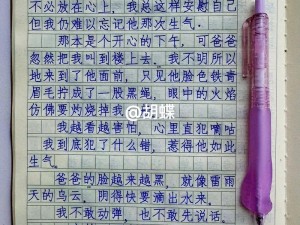 不必放在心上，我总这样安慰自己
但我仍难以忘记他那次生气。
那本是个开心的下午，可爸爸
忽然把我叫到楼上去。我不明所以
地来到了他面前，只见他脸色铁青
眉毛拧成了一股黑绳，眼中的火焰
仿佛要灼烧掉我
@胡蝶
我越看越害怕，心里直犯嘀咕
我到底犯了什么错，惹得他如此
生气。
爸爸的脸越来越黑，就像雷雨
天的乌云，阴得快要滴出水来。
我不敢动弹，也不敢先说话。